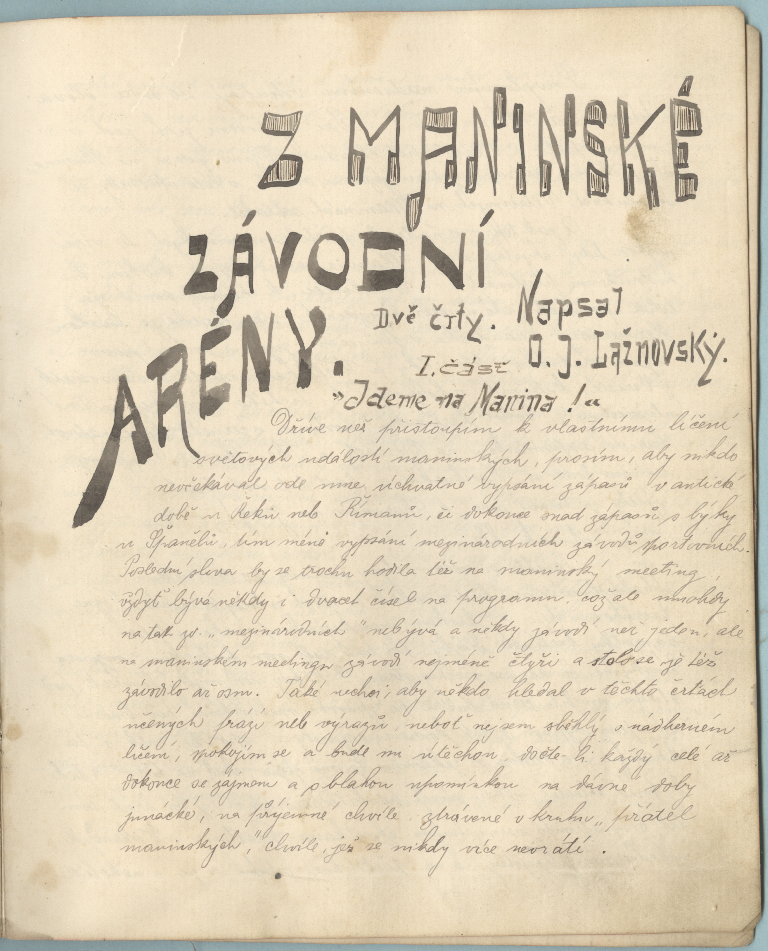 Z MANINSKÉ
ZÁVODNÍ
ARÉNY.
Dvě črty.
Napsal
O. J. Lažnovský.
I. část
„Jdeme na Manina!“
Dříve než přistoupím k vlastnímu líčení
světových událostí maninských, prosím, aby nikdo
neočekával ode mne úchvatné vypsání zápasů v antické
době u Řeků neb Římanů, či dokonce snad zápasů s býky
u Španělů, tím méně vypsání mezinárodních závodů sportovních.
Poslední slova by se trochu hodila též na maninský meeting,
vždyť bývá někdy i dvacet čísel na programu, což ale mnohdy
na tak zv. „mezinárodních“ nebývá a někdy závodí než jeden, ale
na maninském meetingu závodí nejméně čtyři a stalo se, že též
závodilo až osm. Také nechci, aby někdo hledal v těchto črtách
učených frází neb výrazů, neboť nejsem sběhlý v nádherném
líčení, spokojím se a bude mi útěchou, dočte-li každý celé až
dokonce se zájmem a s blahou upomínkou na dávné doby
junácké, na příjemné chvíle ztrávené v kruhu „přátel
maninských“, chvíle, jež se nikdy více nevrátí.